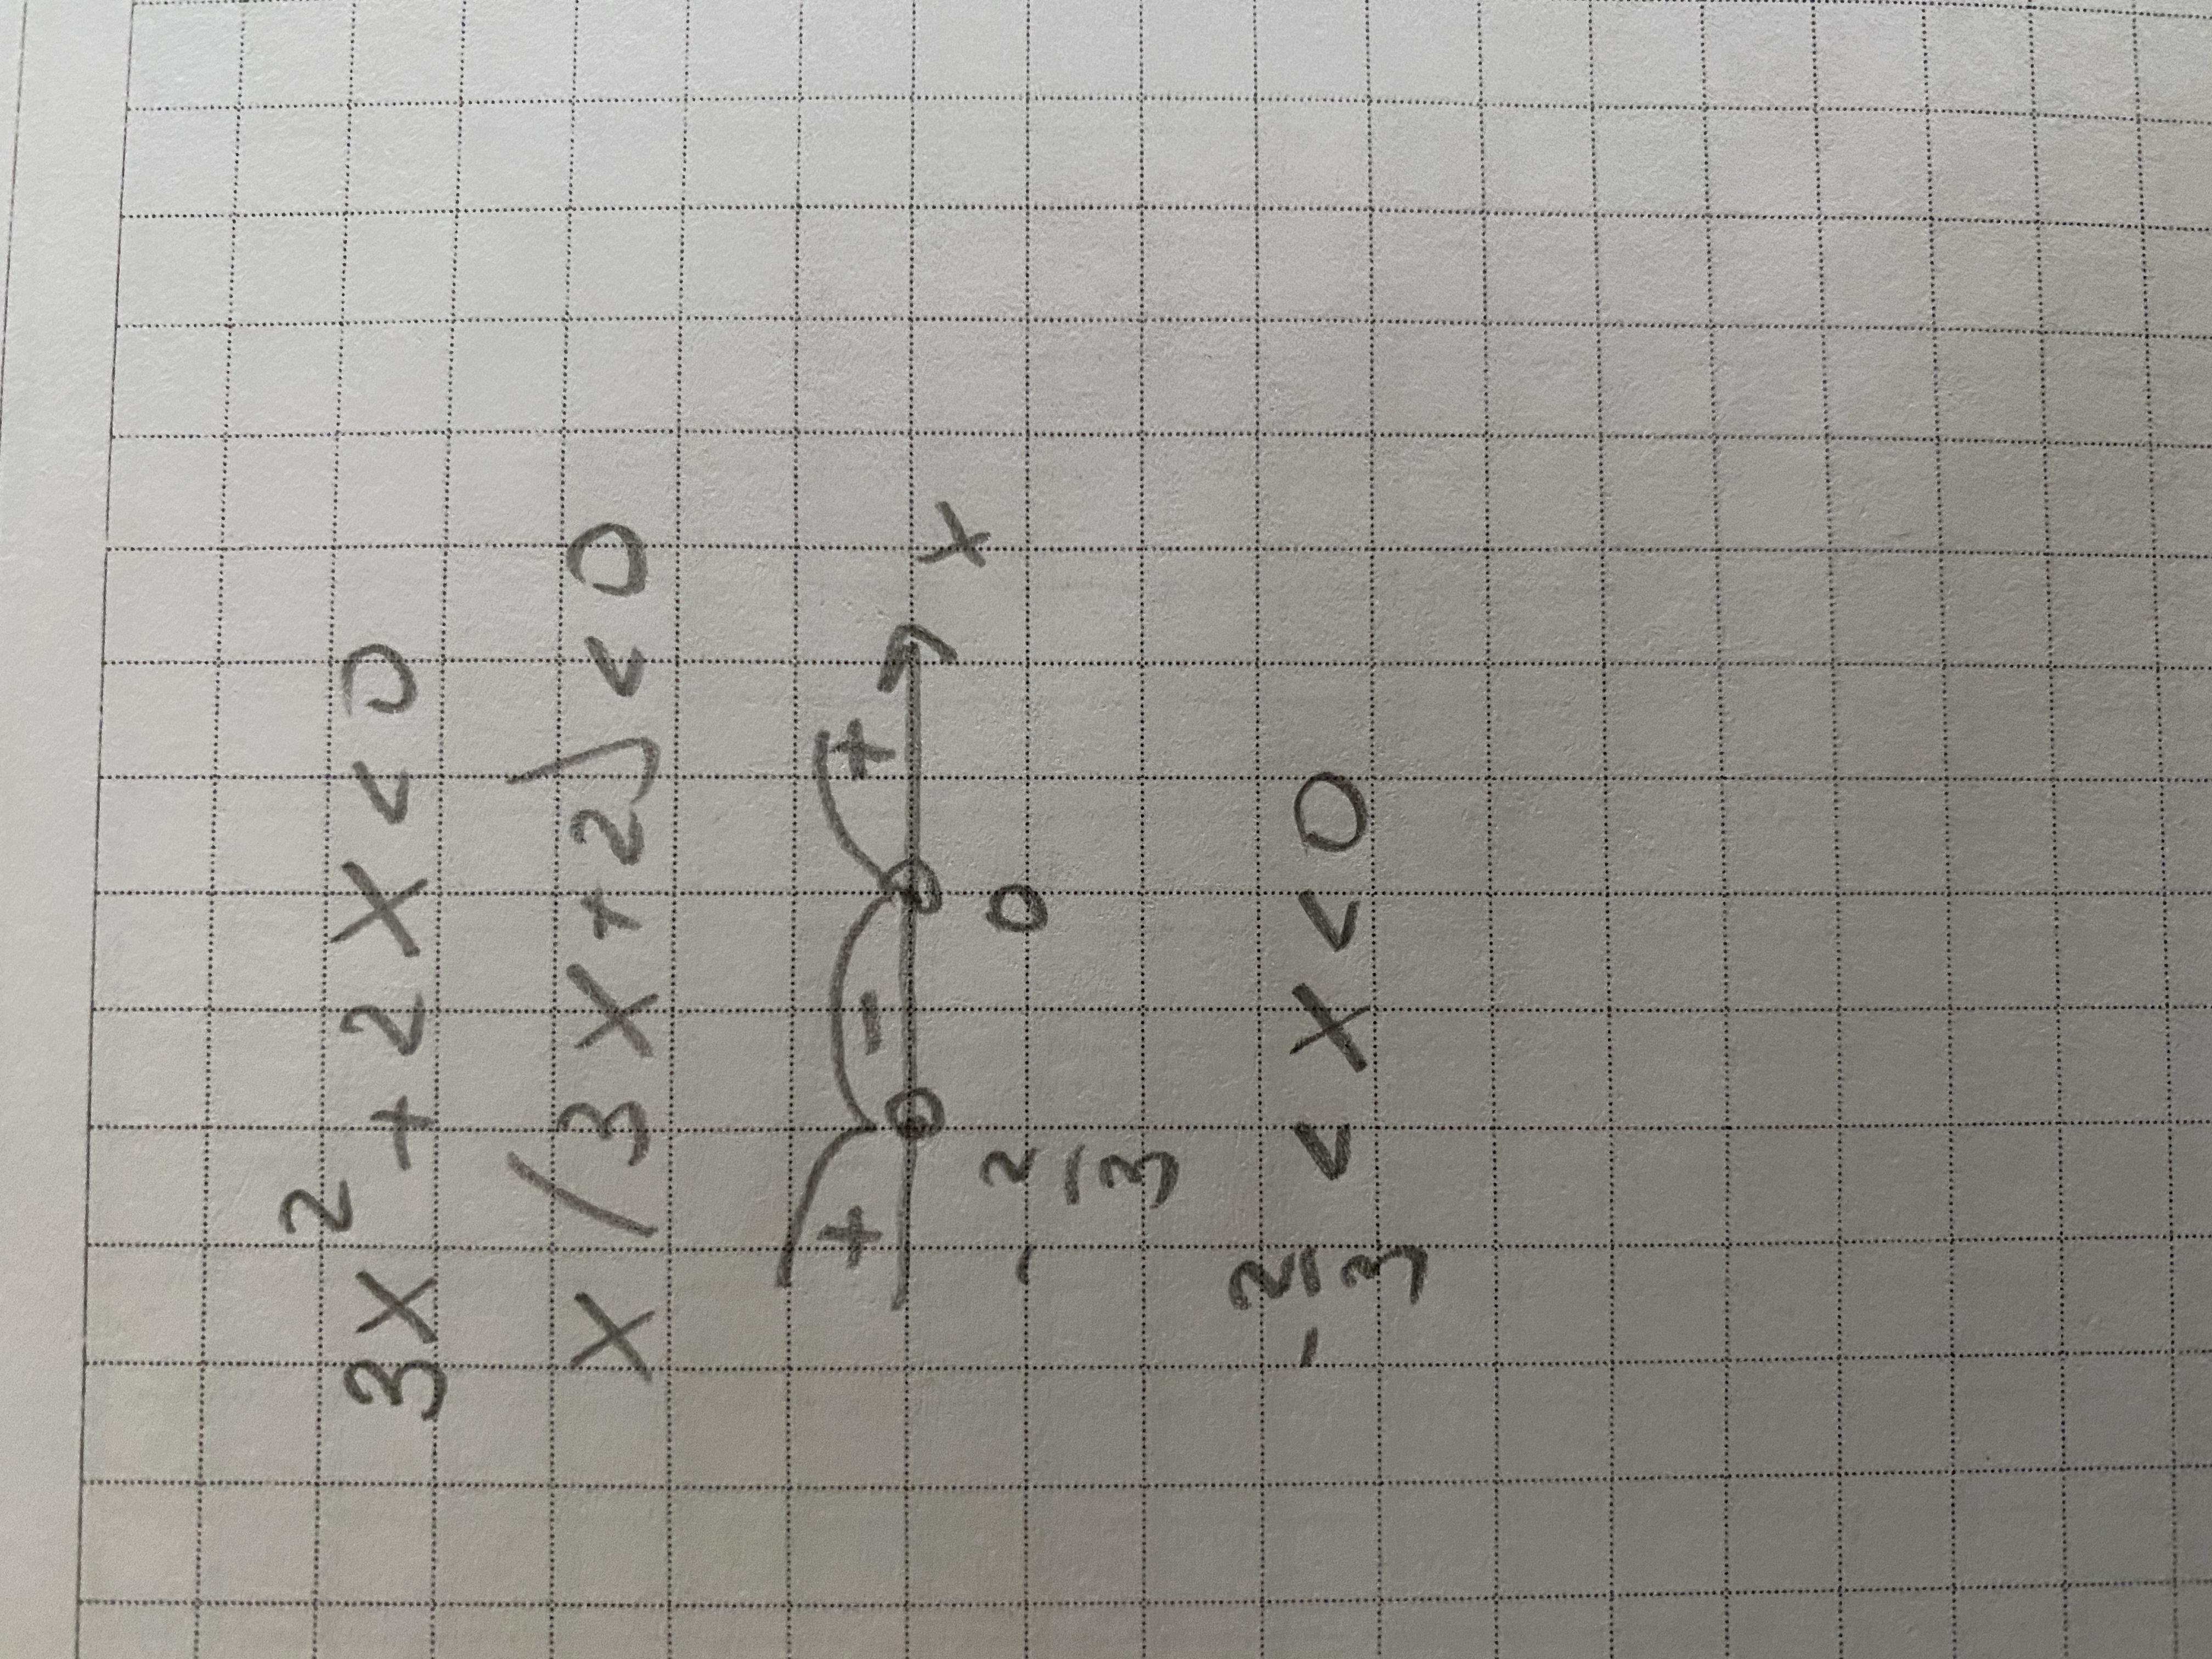 3x² + 2x < 0
x(3x + 2) < 0
+ - + x
-2/3 0
-2/3 < x < 0